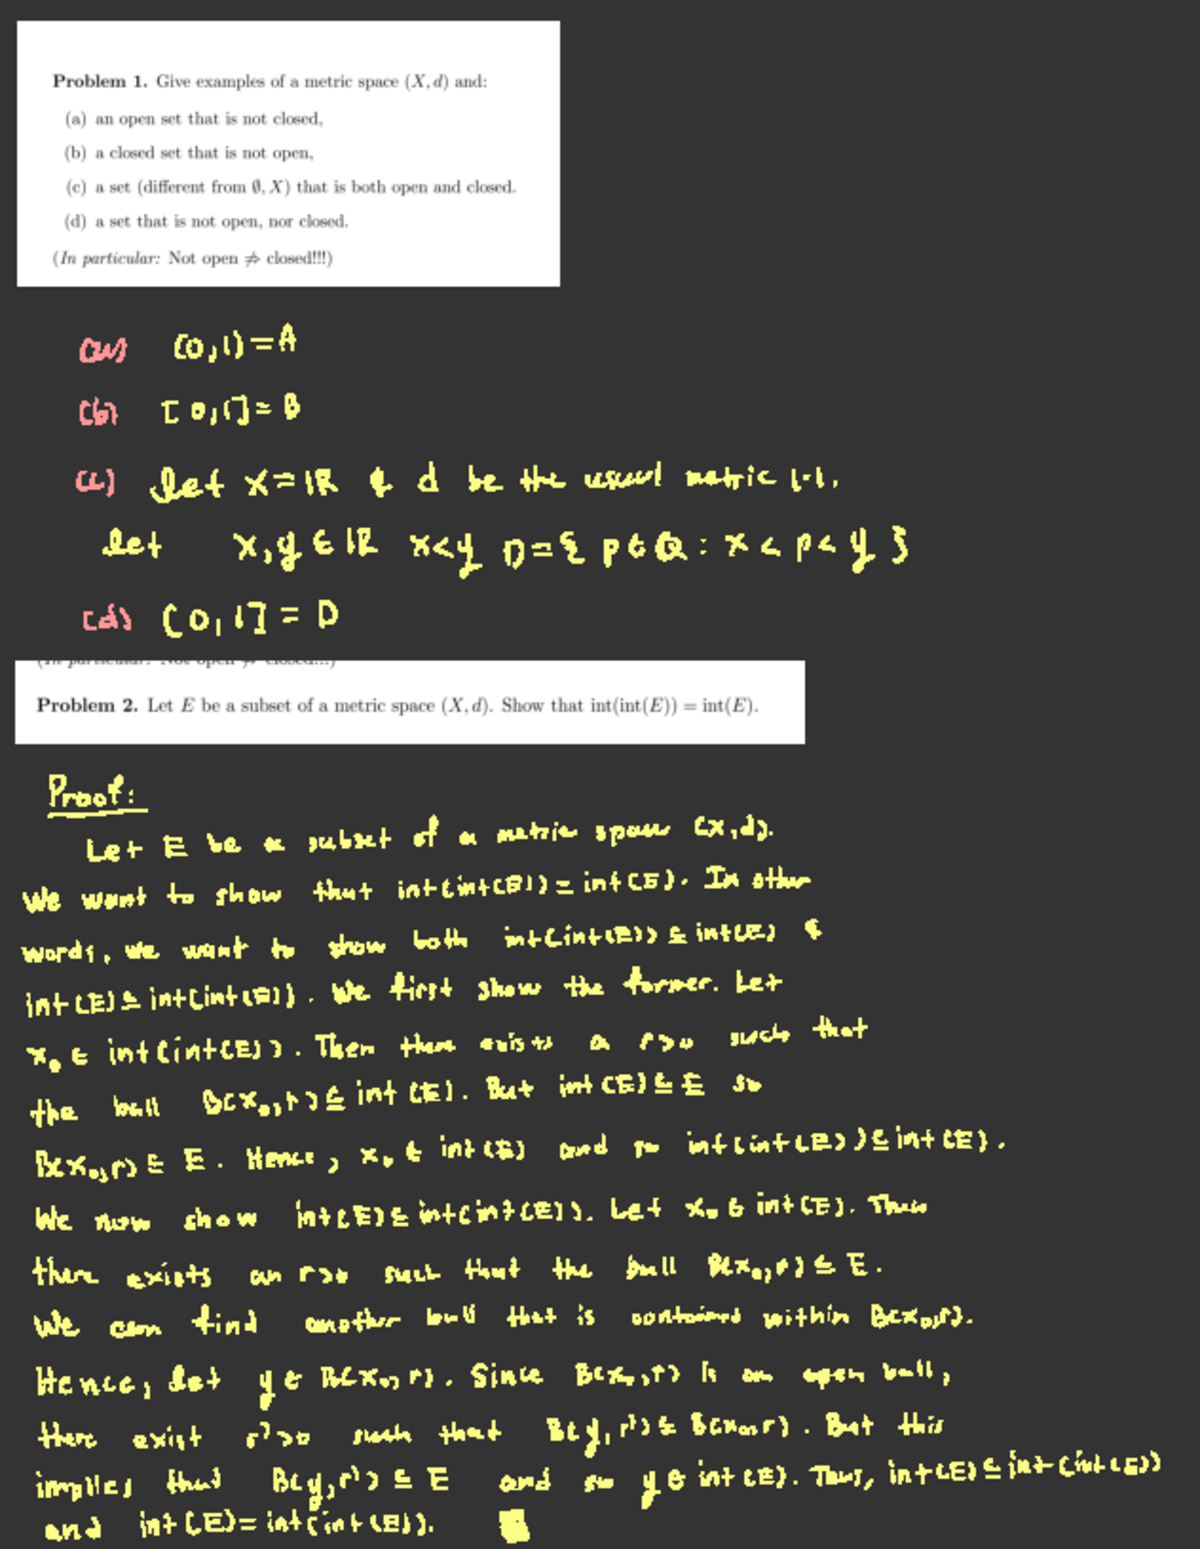 Problem 1. Give examples of a metric space (X, d) and:
(a) an open set that is not closed,
(b) a closed set that is not open,
(c) a set (different from ∅, X) that is both open and closed.
(d) a set that is not open, nor closed.
(In particular: Not open ⇏ closed!!!)
(a) (0,1) = A
(b) [0,1] = B
(c) Let X = ℝ & d be the usual metric |·|.
Let x,y ∈ ℝ x<y D = { p ∈ ℚ : x < p < y }
(d) (0,1] = D
Problem 2. Let E be a subset of a metric space (X, d). Show that int(int(E)) = int(E).
Proof:
Let E be a subset of a metric space (X,d).
We want to show that int(int(E)) = int(E). In other
words, we want to show both int(int(E)) ⊆ int(E) &
int(E) ⊆ int(int(E)). We first show the former. Let
x₀ ∈ int(int(E)). Then there exists a r>0 such that
the ball B(x₀,r) ⊆ int(E). But int(E) ⊆ E so
B(x₀,r) ⊆ E. Hence, x₀ ∈ int(E) and so int(int(E)) ⊆ int(E).
We now show int(E) ⊆ int(int(E)). Let x₀ ∈ int(E). Then
there exists an r>0 such that the ball B(x₀,r) ⊆ E.
We can find another ball that is contained within B(x₀,r).
Hence, let y ∈ B(x₀,r). Since B(x₀,r) is an open ball,
there exist r'>0 such that B(y,r') ⊆ B(x₀,r). But this
implies that B(y,r') ⊆ E and so y ∈ int(E). Thus, int(E) ⊆ int(int(E))
and int(E) = int(int(E)).